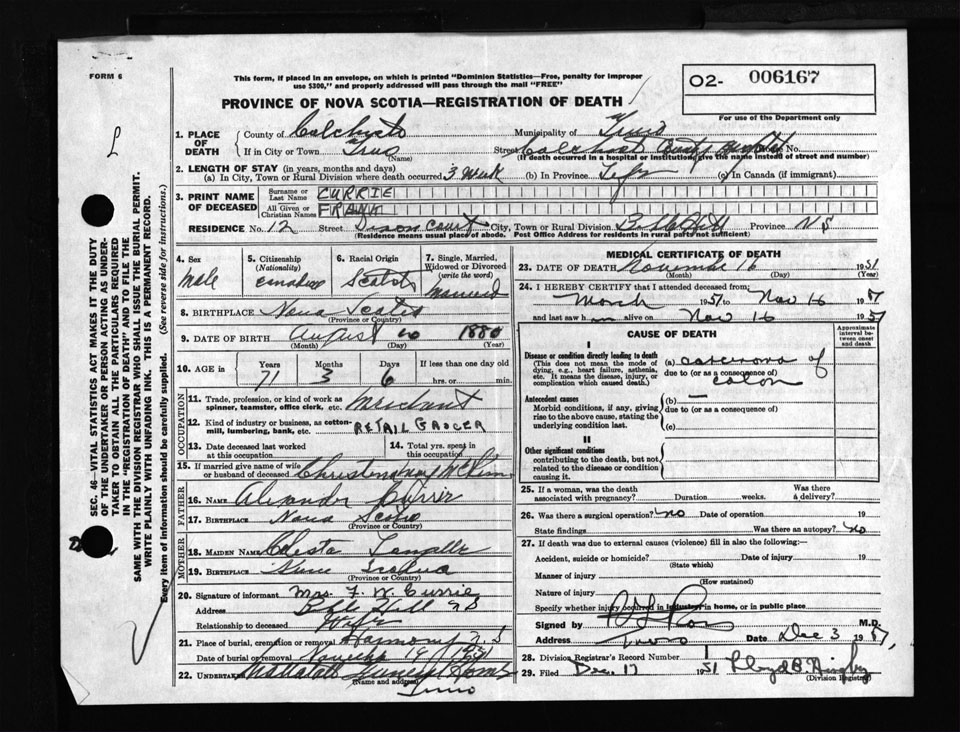 FORM 6
This form, if placed in an envelope, on which is printed "Dominion Statistics—Free, penalty for improper
use $300," and properly addressed will pass through the mail "FREE"
PROVINCE OF NOVA SCOTIA—REGISTRATION OF DEATH
O2- 006167
For use of the Department only
1. PLACE OF DEATH
County of Colchester Municipality of Truro
If in City or Town Truro Street Colchester County Hospital No.
(Name) (If death occurred in a hospital or institution, give the name instead of street and number)
2. LENGTH OF STAY (in years, months and days)
(a) In City, Town or Rural Division where death occurred 3 week (b) In Province Life (c) In Canada (if immigrant)
3. PRINT NAME OF DECEASED
Surname or Last Name CURRIE
All Given or Christian Names FRANK
RESIDENCE No. 12 Street Court City, Town or Rural Division Bible Hill Province N S
(Residence means usual place of abode. Post Office Address for residents in rural parts not sufficient)
4. Sex
male
5. Citizenship
(Nationality)
Canadian
6. Racial Origin
Scotch
7. Single, Married,
Widowed or Divorced
(write the word)
Married
8. BIRTHPLACE Nova Scotia
(Province or Country)
9. DATE OF BIRTH August 10 1880
(Month) (Day) (Year)
10. AGE in
Years 71
Months 3
Days 6
If less than one day old
hrs. or min.
OCCUPATION
11. Trade, profession, or kind of work as
spinner, teamster, office clerk, etc. Merchant
12. Kind of industry or business, as cotton-
mill, lumbering, bank, etc. RETAIL GROCER
13. Date deceased last worked
at this occupation
14. Total yrs. spent in
this occupation
15. If married give name of wife
or husband of deceased
FATHER
16. NAME Alexander Currie
17. BIRTHPLACE Nova Scotia
(Province or Country)
MOTHER
18. MAIDEN NAME Celesta
19. BIRTHPLACE Nova Scotia
(Province or Country)
20. Signature of informant Mrs. F. W. Currie
Address Bible Hill N S
Relationship to deceased Wife
21. Place of burial, cremation or removal Harmony N.S
Date of burial or removal 19 1951
22. UNDERTAKER Funeral Home
(Name and address)
Truro
MEDICAL CERTIFICATE OF DEATH
23. DATE OF DEATH November 16 1951
(Month) (Day) (Year)
24. I HEREBY CERTIFY that I attended deceased from:
March 1951 to Nov 16 1951
and last saw him alive on Nov 16 1951
CAUSE OF DEATH
Approximate interval between onset and death
I
Disease or condition directly leading to death
(This does not mean the mode of
dying, e.g., heart failure, asthenia,
etc. It means the disease, injury, or
complication which caused death.)
(a) carcinoma of
due to (or as a consequence of)
colon
Antecedent causes
Morbid conditions, if any, giving
rise to the above cause, stating the
underlying condition last.
(b) —
due to (or as a consequence of)
(c)
II
Other significant conditions
contributing to the death, but not
related to the disease or condition
causing it.
25. If a woman, was the death
associated with pregnancy? Duration weeks. Was there a delivery?
26. Was there a surgical operation? no Date of operation 19
State findings Was there an autopsy? no
27. If death was due to external causes (violence) fill in also the following:—
Accident, suicide or homicide? Date of injury 19
(State which)
Manner of injury
(How sustained)
Nature of injury
Specify whether injury occurred in industry, in home, or in public place
Signed by M.D.
Address Truro Date Dec 3 1951
28. Division Registrar's Record Number
29. Filed Dec. 17 1951
(Division Registrar)
SEC. 46—VITAL STATISTICS ACT MAKES IT THE DUTY
OF THE UNDERTAKER OR PERSON ACTING AS UNDER-
TAKER TO OBTAIN ALL THE PARTICULARS REQUIRED
IN THE "REGISTRATION OF DEATH" AND TO FILE THE
SAME WITH THE DIVISION REGISTRAR WHO SHALL ISSUE THE BURIAL PERMIT.
WRITE PLAINLY WITH UNFADING INK. THIS IS A PERMANENT RECORD.
Every item of information should be carefully supplied. (See reverse side for instructions.)